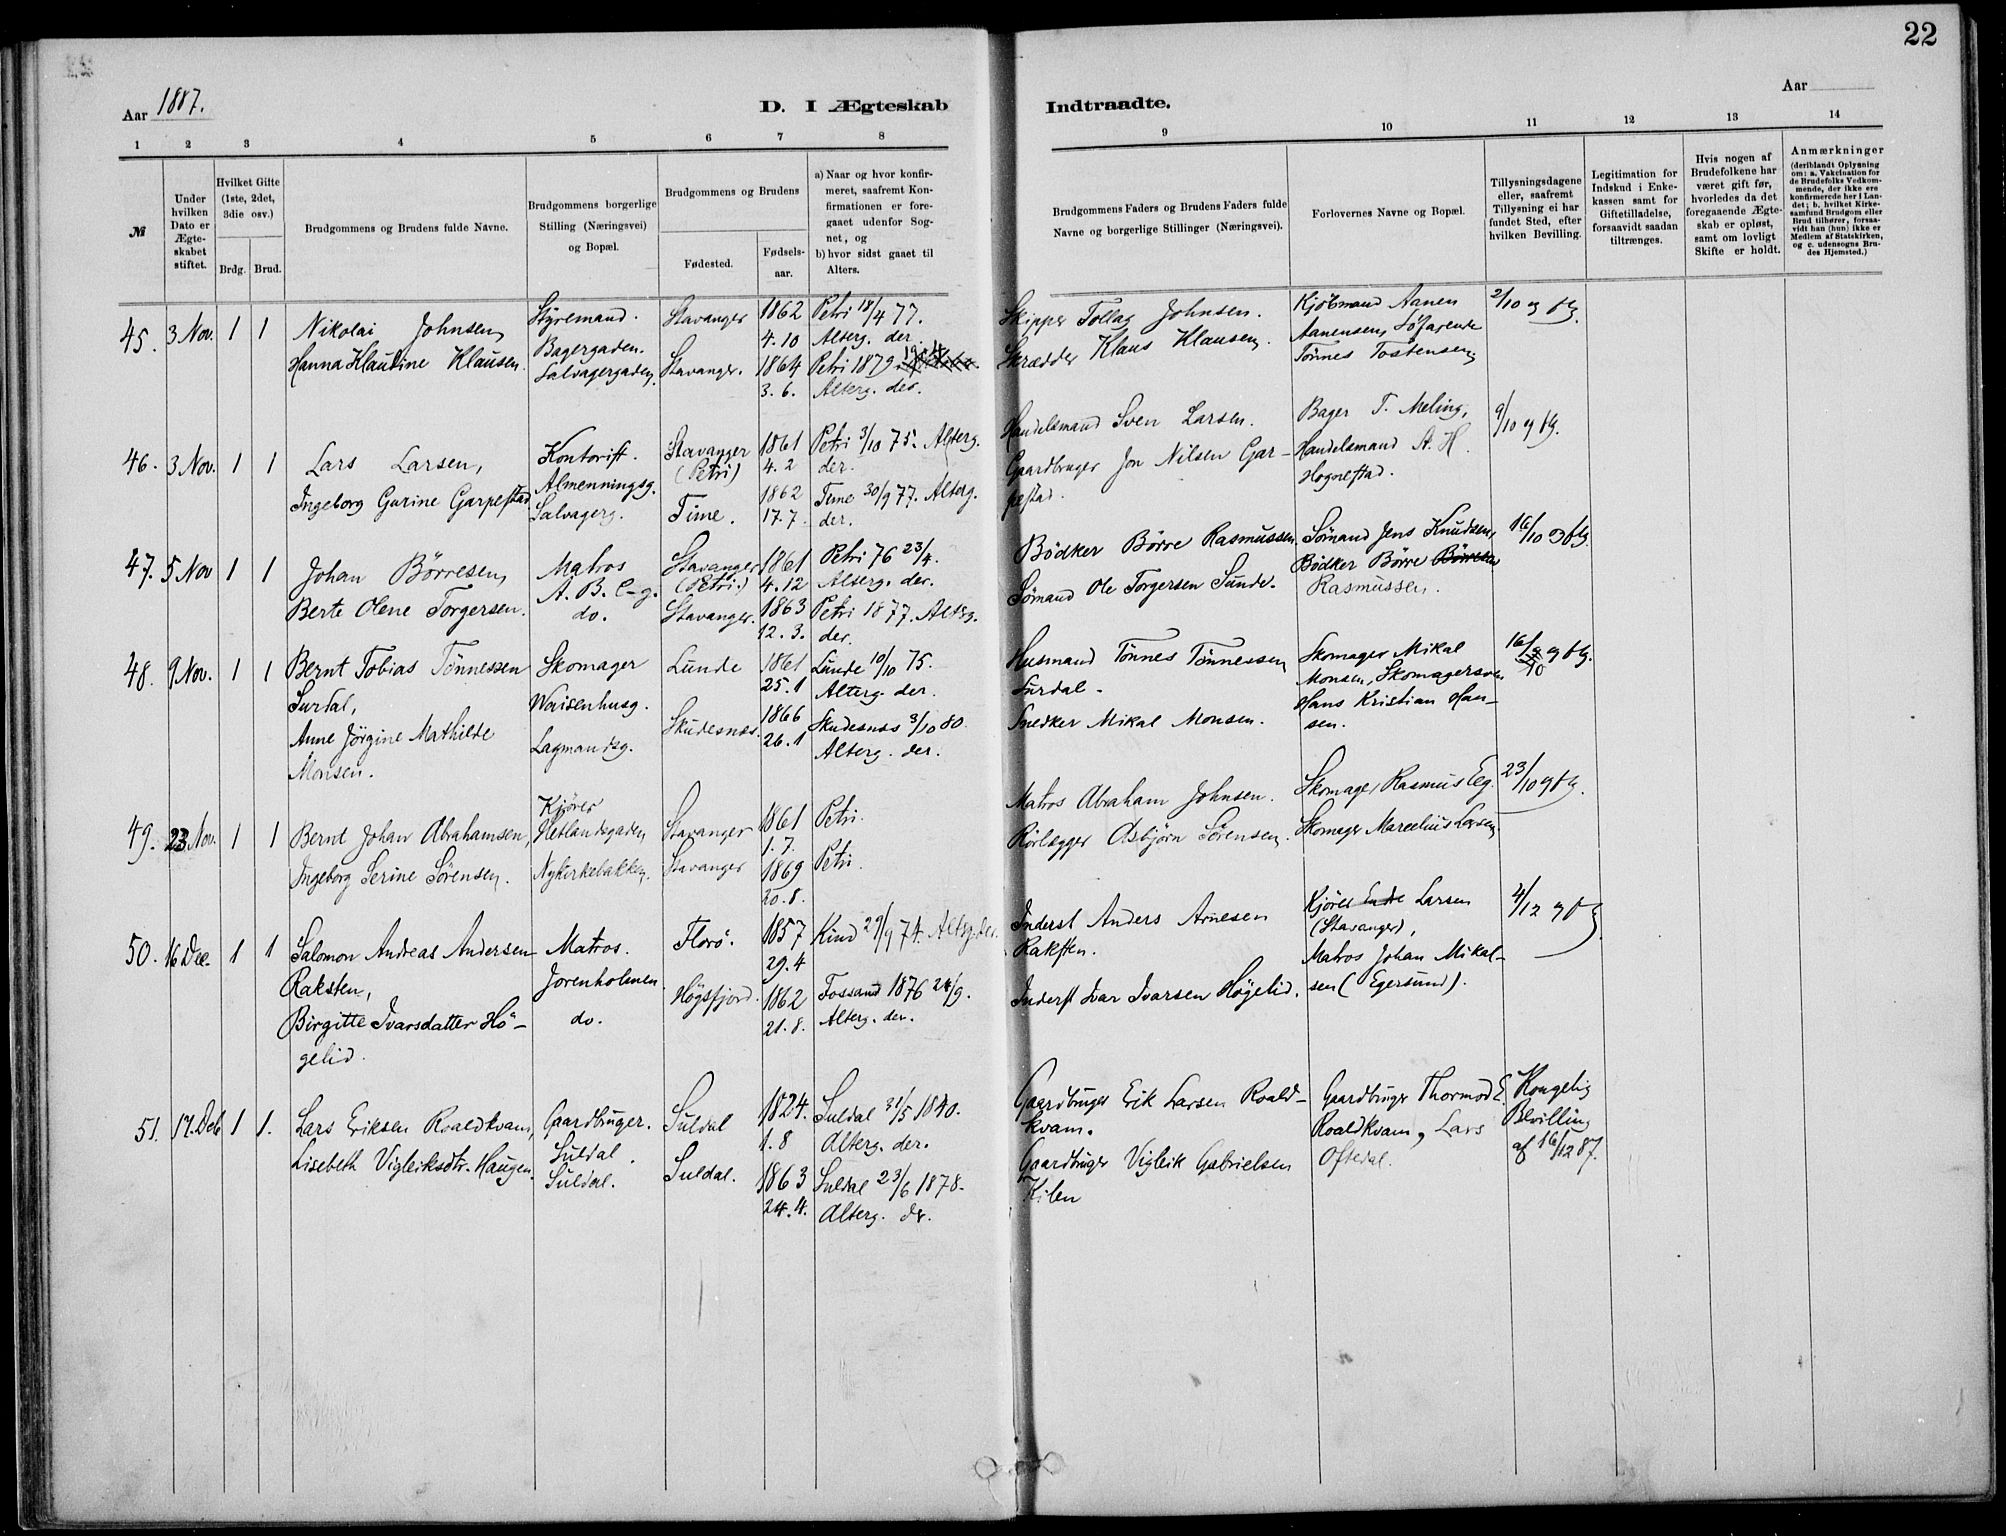 22
Aar 1887.
D. I Ægteskab
Indtraadte.
Aar
1 2 3 4 5 6 7 8 9 10 11 12 13 14
№
Under hvilken Dato er Ægteskabet stiftet.
Hvilket Gifte (1ste, 2det, 3die osv.)
Brdg. Brud.
Brudgommens og Brudens fulde Navne.
Brudgommens borgerlige Stilling (Næringsvei) og Bopæl.
Brudgommens og Brudens
Fødested.
Fødselsaar.
a) Naar og hvor konfirmeret, saafremt Konfirmationen er foregaaet udenfor Sognet, og
b) hvor sidst gaaet til Alters.
Brudgommens Faders og Brudens Faders fulde Navne og borgerlige Stillinger (Næringsvei).
Forlovernes Navne og Bopæl.
Tillysningsdagene eller, saafremt Tillysning ei har fundet Sted, efter hvilken Bevilling.
Legitimation for Indskud i Enkekassen samt for Giftetilladelse, forsaavidt saadan tiltrænges.
Hvis nogen af Brudefolkene har været gift før, hvorledes da det foregaaende Ægteskab er opløst, samt om lovligt Skifte er holdt.
Anmærkninger
(deriblandt Oplysning om: a. Vakcination for de Brudefolks Vedkommende, der ikke ere konfirmerede her i Landet; b. hvilket Kirkesamfund Brudgom eller Brud tilhører, forsaavidt han (hun) ikke er Medlem af Statskirken, og c. udensogns Brudes Hjemsted.)
45. 3 Nov. 1 1 Nikolai Johnsen, Styremand. Bagergaden. Stavanger 1862 4.10 Petri 18/4 77. Alterg. der.
Hanna Klaudine Klausen. Salvagergaden. Stavanger. 1864 3.6. Petri 1879 Alterg. der.
Skipper Tollag Johnsen.
Skrædder Klaus Klausen.
Kjöbmand Aanen Aanensen, Söfarende Tönnes Tostensen
2/10 og flg.
46. 3 Nov. 1 1 Lars Larsen, Kontorist. Almenningsg. Stavanger (Petri) 1861 4.2 Petri 3/10 75. Alterg. der.
Ingeborg Gurine Garpestad Salvagerg. Time. 1862 17.7. Time 30/9 77. Alterg. der.
Handelsmand Sven Larsen.
Gaardbruger Jon Nilsen Garpestad.
Bager T. Meling, Handelsmand A. H. Hognestad.
9/10 og flg.
47. 5 Nov 1 1 Johan Börresen, Matros A. B. C-g. Stavanger (Petri.) 1861 4.12 Petri 76 23/4. Alterg. der.
Berte Olene Torgersen. do. Stavanger. 1863 12.3. Petri 1877. Alterg. der.
Bödker Börre Rasmussen.
Sömand Ole Torgersen Sunde.
Sömand Jens Knudsen, Bödker Börre Börresen Rasmussen.
16/10 og flg.
48. 9 Nov. 1 1 Bernt Tobias Tönnessen Surtal, Skomager Waisenhusg. Lunde 1861 25.1 Lunde 10/10 75. Alterg. der.
Anne Jörgine Mathilde Monsen. Lagmandsg. Skudesnes. 1866 26.1 Skudesnes 3/10 80. Alterg. der.
Husmand Tönnes Tönnessen Surdal.
Snedker Mikal Monsen.
Skomager Mikal Monsen, Skomagersven Hans Kristian Hansen.
16/10 og flg.
49. 23 Nov. 1 1 Bernt Johan Abrahamsen, Kjörer Hetlandsgaden, Stavanger 1861 1.7. Petri.
Ingeborg Serine Sörensen. Nykirkebakken. Stavanger 1869 20.8. Petri.
Matros Abraham Johnsen.
Rörlægger Asbjörn Sörensen.
Skomager Rasmus Eeg.
Skomager Marcelius Larsen.
23/10 og flg.
50. 16 Dec. 1 1 Salomon Andreas Andersen Raksten, Matros. Jorenholmen Florö. 1857 29.4 Kind 29/9 74. Alterg. der.
Birgitte Ivarsdatter Högelid. do. Högsfjord. 1862 21.8. Fossand 1876 24/9. Alterg. der.
Inderst Anders Arnesen Raksten.
Inderst Ivar Ivarsen Högelid.
Kjörer Larsen (Stavanger), Matros Johan Mikalsen (Egersund).
4/12 og flg.
51. 17. Deb 1 1. Lars Eriksen Roaldkvam, Gaardbruger. Suldal. Suldal 1824. 1.8 Suldal 31/5 1840. Alterg. der.
Lisebeth Vigleiksdtr. Haugen. Suldal. Suldal. 1863 24.4. Suldal 23/6 1878. Alterg. der.
Gaardbruger Erik Larsen Roaldkvam.
Gaardbruger Vigleik Gabrielsen Kilen
Gaardbruger Thormod E. Roaldkvam, Lars Oftedal.
Kongelig Bevilling af 16/12 87.